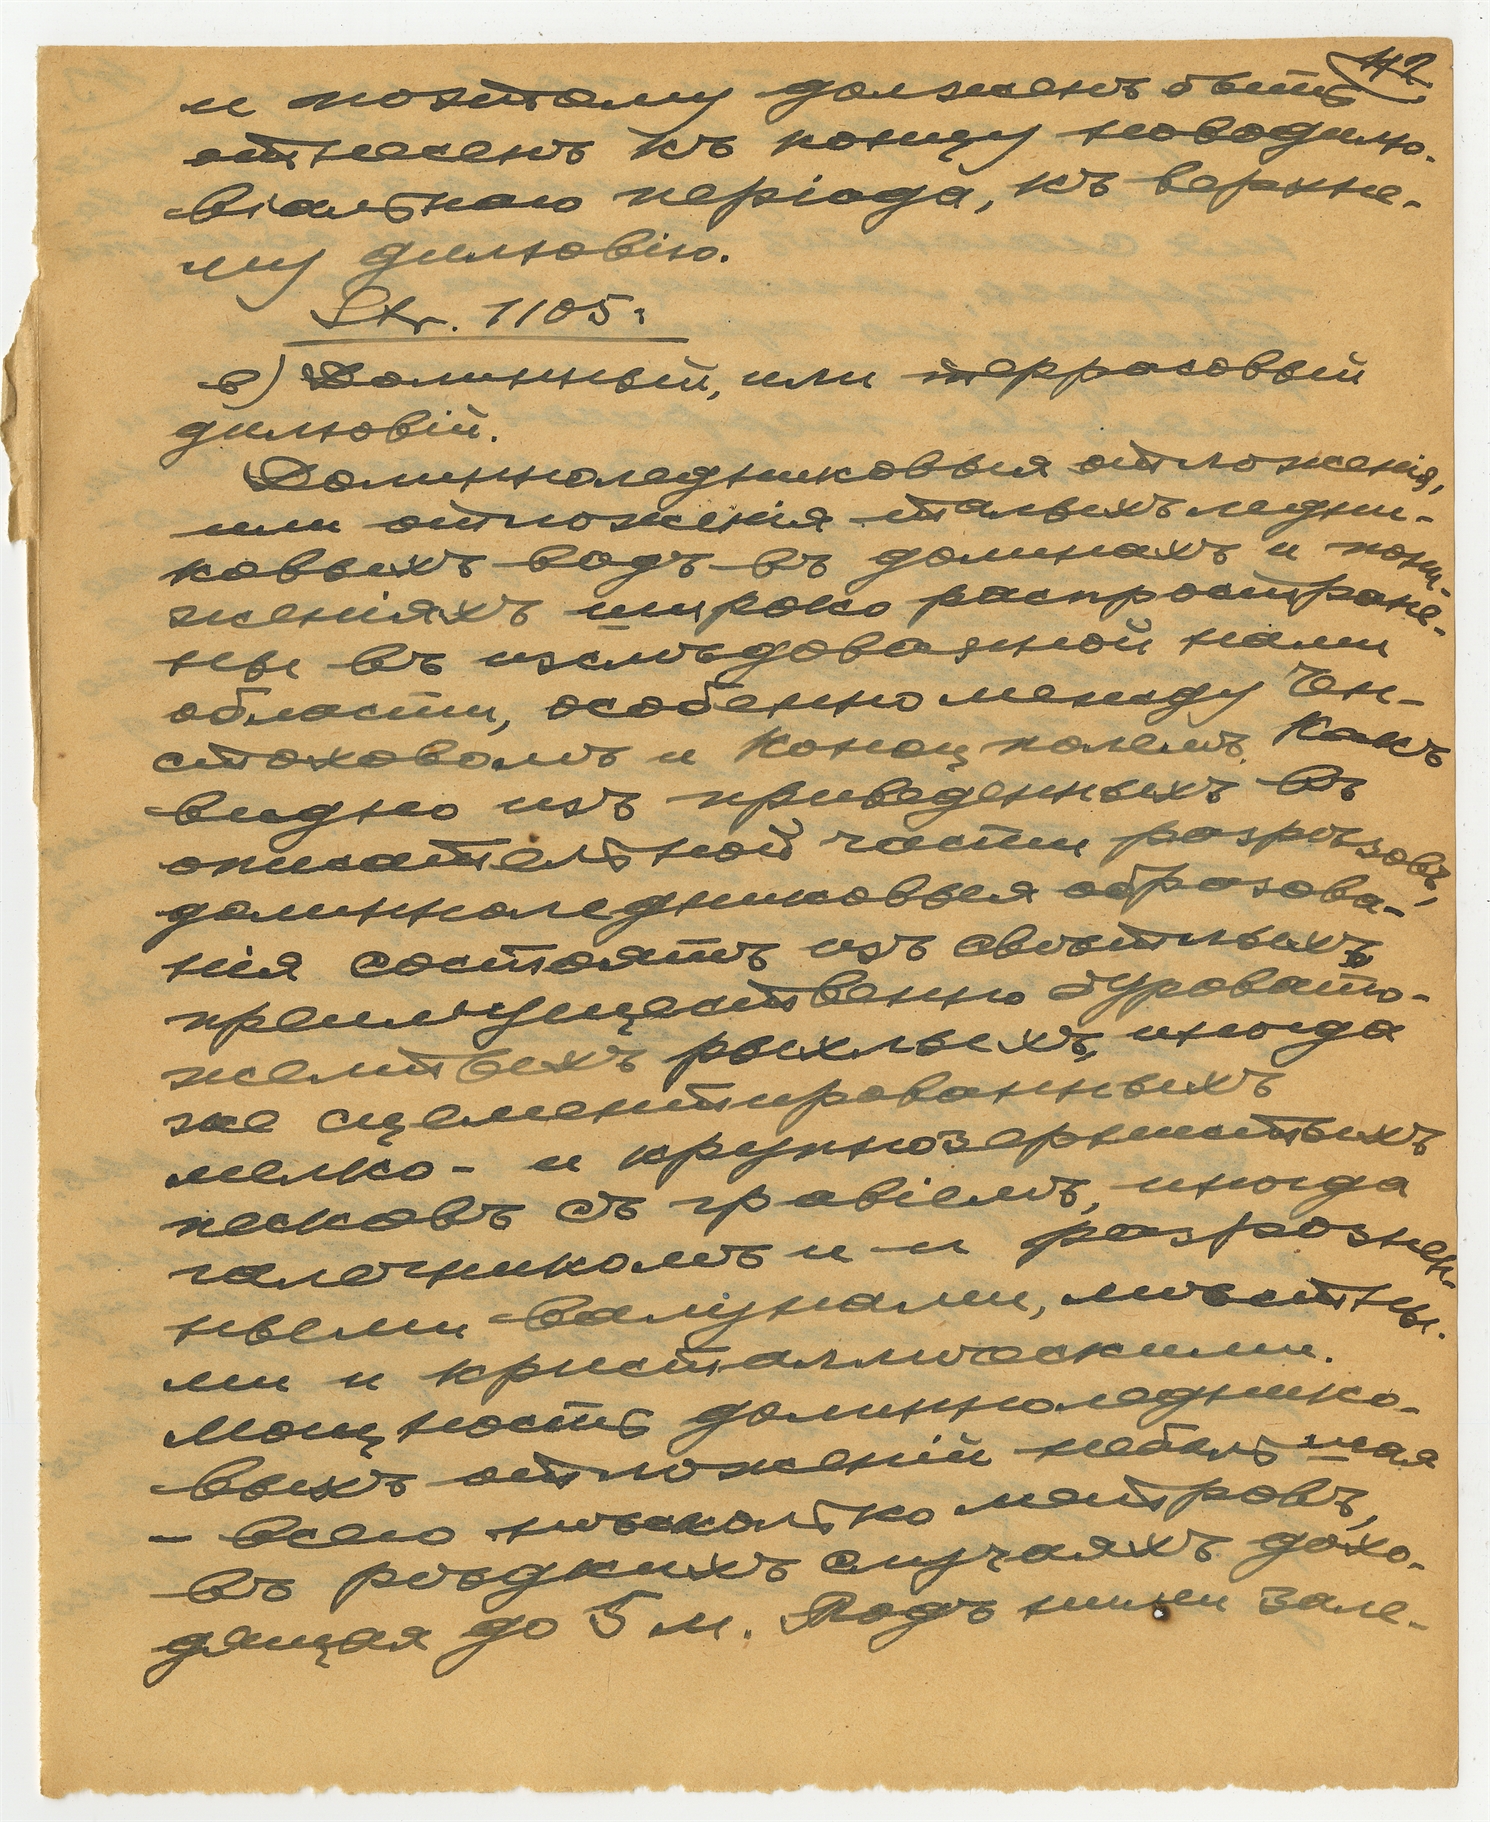 42
и поэтому долженъ быть
отнесенъ къ концу новодилю-
віальнаго періода, къ верхне-
му дилювію.
Str. 1105.
в) Долинный, или террасовый
дилювій.
Долинноледниковыя отложенія,
или отложенія талыхъ ледни-
ковыхъ водъ въ долинахъ и пони-
женіяхъ широко распростране-
ны въ изслѣдованной нами
области, особенно между Чен-
стоховомъ и Конецполемъ. Какъ
видно изъ приведенныхъ въ
описательной части разрѣзовъ,
долинноледниковыя образова-
нія состоятъ изъ свѣтлыхъ
преимущественно буровато-
желтыхъ рыхлыхъ, иногда
же сцементированныхъ
мелко- и крупнозернистыхъ
песковъ съ гравіемъ, иногда
галечникомъ и и разрознен-
ными валунами, мѣстны-
ми и кристаллическими.
Мощность долинноледнико-
выхъ отложеній небольшая
- всего нѣсколько метровъ,
въ рѣдкихъ случаяхъ дохо-
дящая до 5 м. Подъ ними зале-